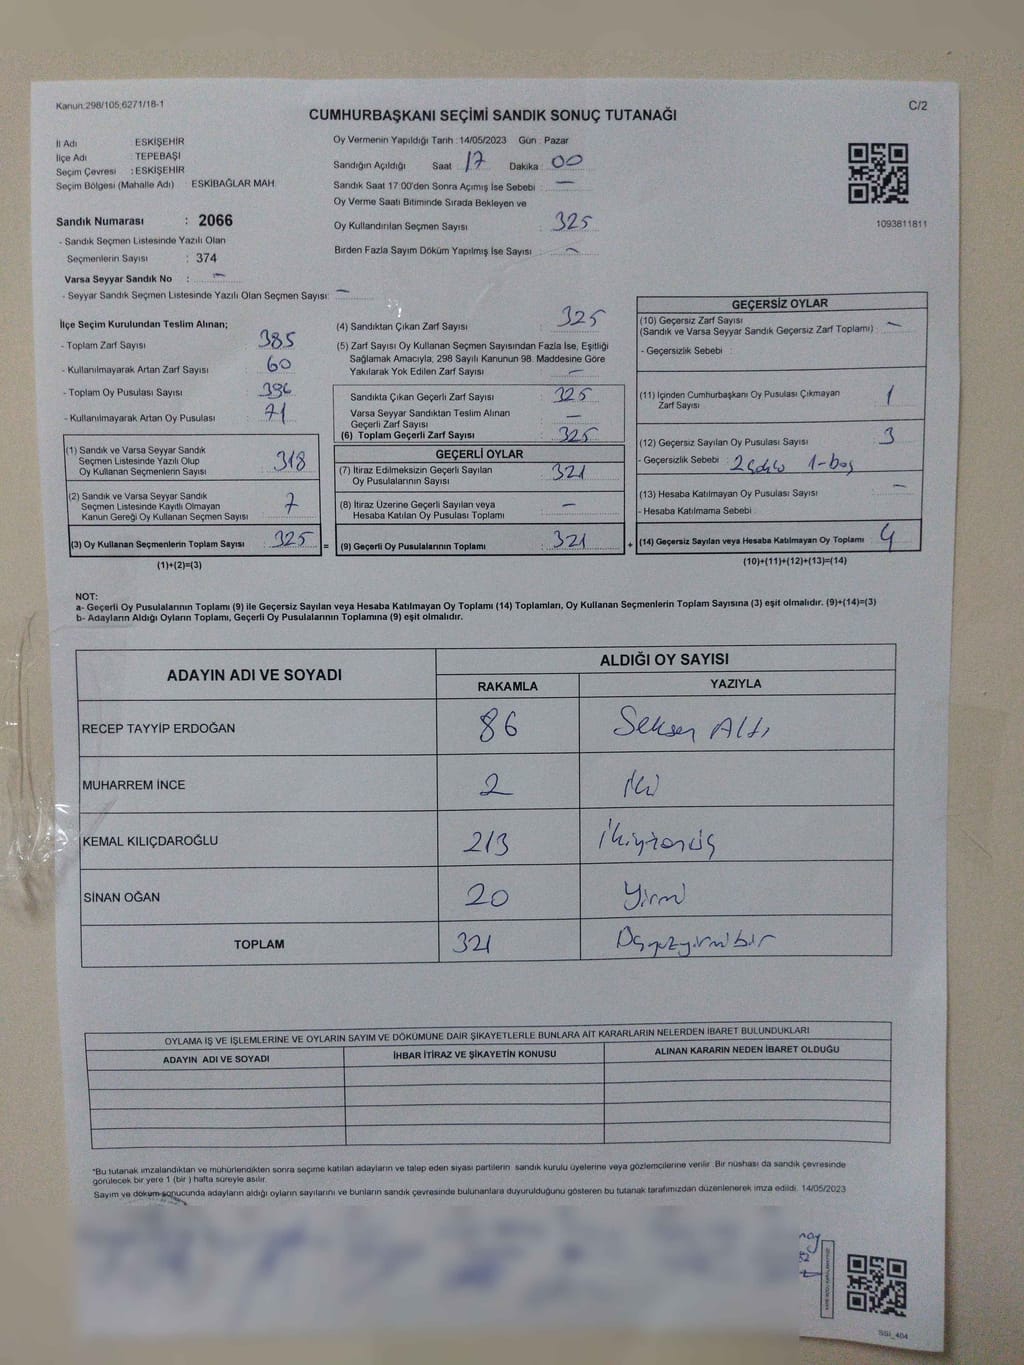 Kanun:298/105,6271/18-1
C/2
CUMHURBAŞKANI SEÇİMİ SANDIK SONUÇ TUTANAĞI
İl Adı : ESKİŞEHİR
İlçe Adı : TEPEBAŞI
Seçim Çevresi : ESKİŞEHİR
Seçim Bölgesi (Mahalle Adı) ESKİBAĞLAR MAH.
Sandık Numarası : 2066
- Sandık Seçmen Listesinde Yazılı Olan
Seçmenlerin Sayısı : 374
Varsa Seyyar Sandık No : -
- Seyyar Sandık Seçmen Listesinde Yazılı Olan Seçmen Sayısı: -
Oy Vermenin Yapıldığı Tarih : 14/05/2023 Gün : Pazar
Sandığın Açıldığı Saat : 17 Dakika : 00
Sandık Saat 17:00'den Sonra Açımış İse Sebebi : -
Oy Verme Saati Bitiminde Sırada Bekleyen ve
Oy Kullandırılan Seçmen Sayısı : 325
Birden Fazla Sayım Döküm Yapılmış İse Sayısı : -
1093811811
İlçe Seçim Kurulundan Teslim Alınan;
- Toplam Zarf Sayısı : 385
- Kullanılmayarak Artan Zarf Sayısı : 60
- Toplam Oy Pusulası Sayısı : 396
- Kullanılmayarak Artan Oy Pusulası : 71
(1) Sandık ve Varsa Seyyar Sandık
Seçmen Listesinde Yazılı Olup
Oy Kullanan Seçmenlerin Sayısı : 318
(2) Sandık ve Varsa Seyyar Sandık
Seçmen Listesinde Kayıtlı Olmayan
Kanun Gereği Oy Kullanan Seçmen Sayısı : 7
(3) Oy Kullanan Seçmenlerin Toplam Sayısı : 325 =
(1)+(2)=(3)
(4) Sandıktan Çıkan Zarf Sayısı : 325
(5) Zarf Sayısı Oy Kullanan Seçmen Sayısından Fazla İse, Eşitliği
Sağlamak Amacıyla, 298 Sayılı Kanunun 98. Maddesine Göre
Yakılarak Yok Edilen Zarf Sayısı : -
Sandıkta Çıkan Geçerli Zarf Sayısı : 325
Varsa Seyyar Sandıktan Teslim Alınan
Geçerli Zarf Sayısı : -
(6) Toplam Geçerli Zarf Sayısı : 325
GEÇERLİ OYLAR
(7) İtiraz Edilmeksizin Geçerli Sayılan
Oy Pusulalarının Sayısı : 321
(8) İtiraz Üzerine Geçerli Sayılan veya
Hesaba Katılan Oy Pusulası Toplamı : -
(9) Geçerli Oy Pusulalarının Toplamı : 321 +
GEÇERSİZ OYLAR
(10) Geçersiz Zarf Sayısı
(Sandık ve Varsa Seyyar Sandık Geçersiz Zarf Toplamı) : -
- Geçersizlik Sebebi :
(11) İçinden Cumhurbaşkanı Oy Pusulası Çıkmayan
Zarf Sayısı : 1
(12) Geçersiz Sayılan Oy Pusulası Sayısı : 3
- Geçersizlik Sebebi : 1-boş
(13) Hesaba Katılmayan Oy Pusulası Sayısı : -
- Hesaba Katılmama Sebebi :
(14) Geçersiz Sayılan veya Hesaba Katılmayan Oy Toplamı : 4
(10)+(11)+(12)+(13)=(14)
NOT:
a- Geçerli Oy Pusulalarının Toplamı (9) ile Geçersiz Sayılan veya Hesaba Katılmayan Oy Toplamı (14) Toplamları, Oy Kullanan Seçmenlerin Toplam Sayısına (3) eşit olmalıdır. (9)+(14)=(3)
b- Adayların Aldığı Oyların Toplamı, Geçerli Oy Pusulalarının Toplamına (9) eşit olmalıdır.
ADAYIN ADI VE SOYADI ALDIĞI OY SAYISI
RAKAMLA YAZIYLA
RECEP TAYYİP ERDOĞAN 86 Seksen Altı
MUHARREM İNCE 2 İki
KEMAL KILIÇDAROĞLU 213 İkiyüzonüç
SİNAN OĞAN 20 Yirmi
TOPLAM 321 Üçyüzyirmibir
OYLAMA İŞ VE İŞLEMLERİNE VE OYLARIN SAYIM VE DÖKÜMÜNE DAİR ŞİKAYETLERLE BUNLARA AİT KARARLARIN NELERDEN İBARET BULUNDUKLARI
ADAYIN ADI VE SOYADI İHBAR İTİRAZ VE ŞİKAYETİN KONUSU ALINAN KARARIN NEDEN İBARET OLDUĞU
*Bu tutanak imzalandıktan ve mühürlendikten sonra seçime katılan adayların ve talep eden siyasi partilerin sandık kurulu üyelerine veya gözlemcilerine verilir. Bir nüshası da sandık çevresinde
görülecek bir yere 1 (bir ) hafta süreyle asılır.
Sayım ve döküm sonucunda adayların aldığı oyların sayılarını ve bunların sandık çevresinde bulunanlara duyurulduğunu gösteren bu tutanak tarafımızdan düzenlenerek imza edildi. 14/05/2023
SSI_404